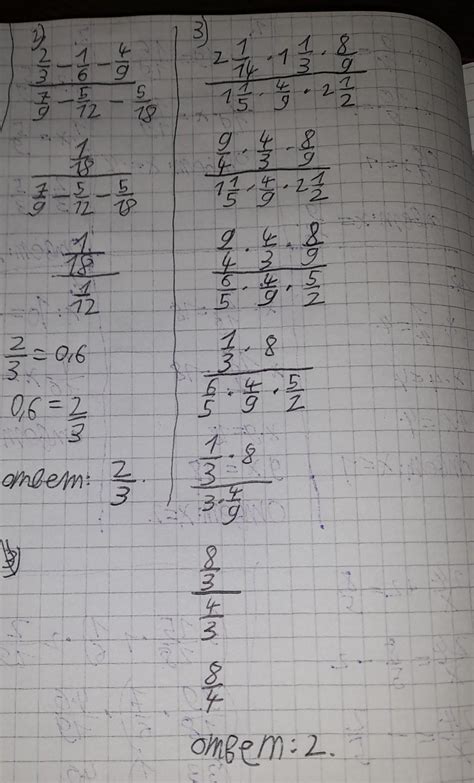 1)
2/3 - 1/6 - 4/9
7/9 - 5/12 - 5/18
1/18
7/9 - 5/12 - 5/18
1/18
1/12
2/3 = 0,6
0,6 = 2/3
ответ: 2/3.
3)
2 1/14 · 1 1/3 · 8/9
1 1/5 · 4/9 · 2 1/2
9/4 · 4/3 · 8/9
1 1/5 · 4/9 · 2 1/2
9/4 · 4/3 · 8/9
6/5 · 4/9 · 5/2
1/3 · 8
6/5 · 4/9 · 5/2
1/3 · 8
3 · 4/9
8/3
4/3
8/4
ответ: 2.